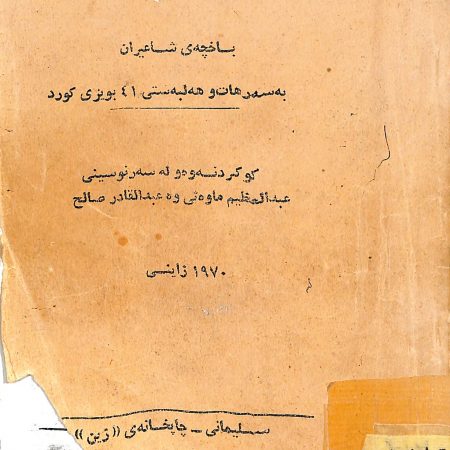 باخچەی شاعیران
بەسەرهات و هەلبەستی ٤١ بویژی کورد
کوکردنەوەو لە سەرنوسینی
عبدالعظیم ماوەتی وە عبدالقادر صالح
١٩٧٠ زاینی
سلیمانی - چاپخانەی ((ژین))